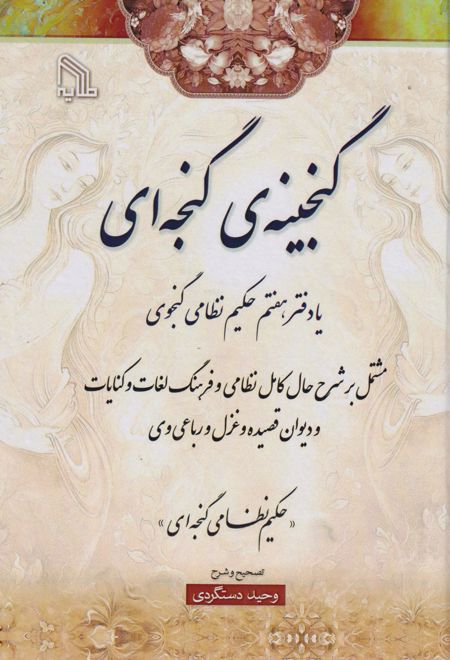 طلایه
گنجینه‌ی گنجه‌ای
یا دفتر هفتم حکیم نظامی گنجوی
مشتمل بر شرح حال کامل نظامی و فرهنگ لغات و کنایات
و دیوان قصیده و غزل و رباعی وی
«حکیم نظامی گنجه‌ای»
تصحیح و شرح
وحید دستگردی